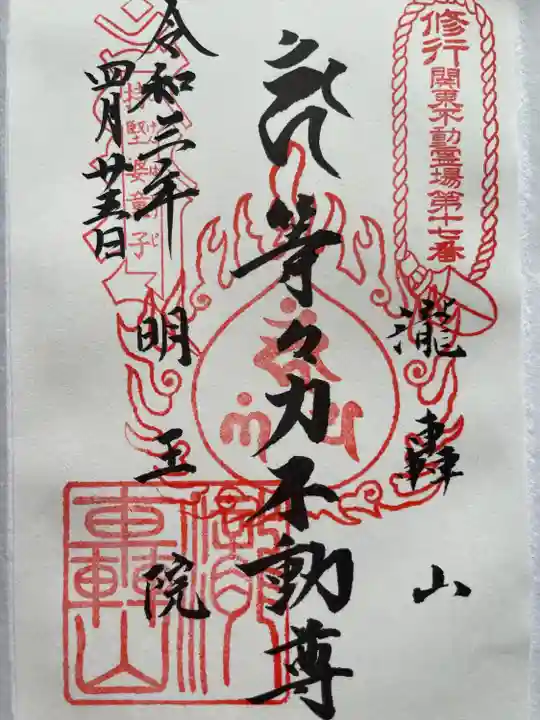 修行
関東不動霊場第十七番
瀧轟山
等々力不動尊
明王院
令和三年
四月廿五日
持堅婆童子
瀧轟山